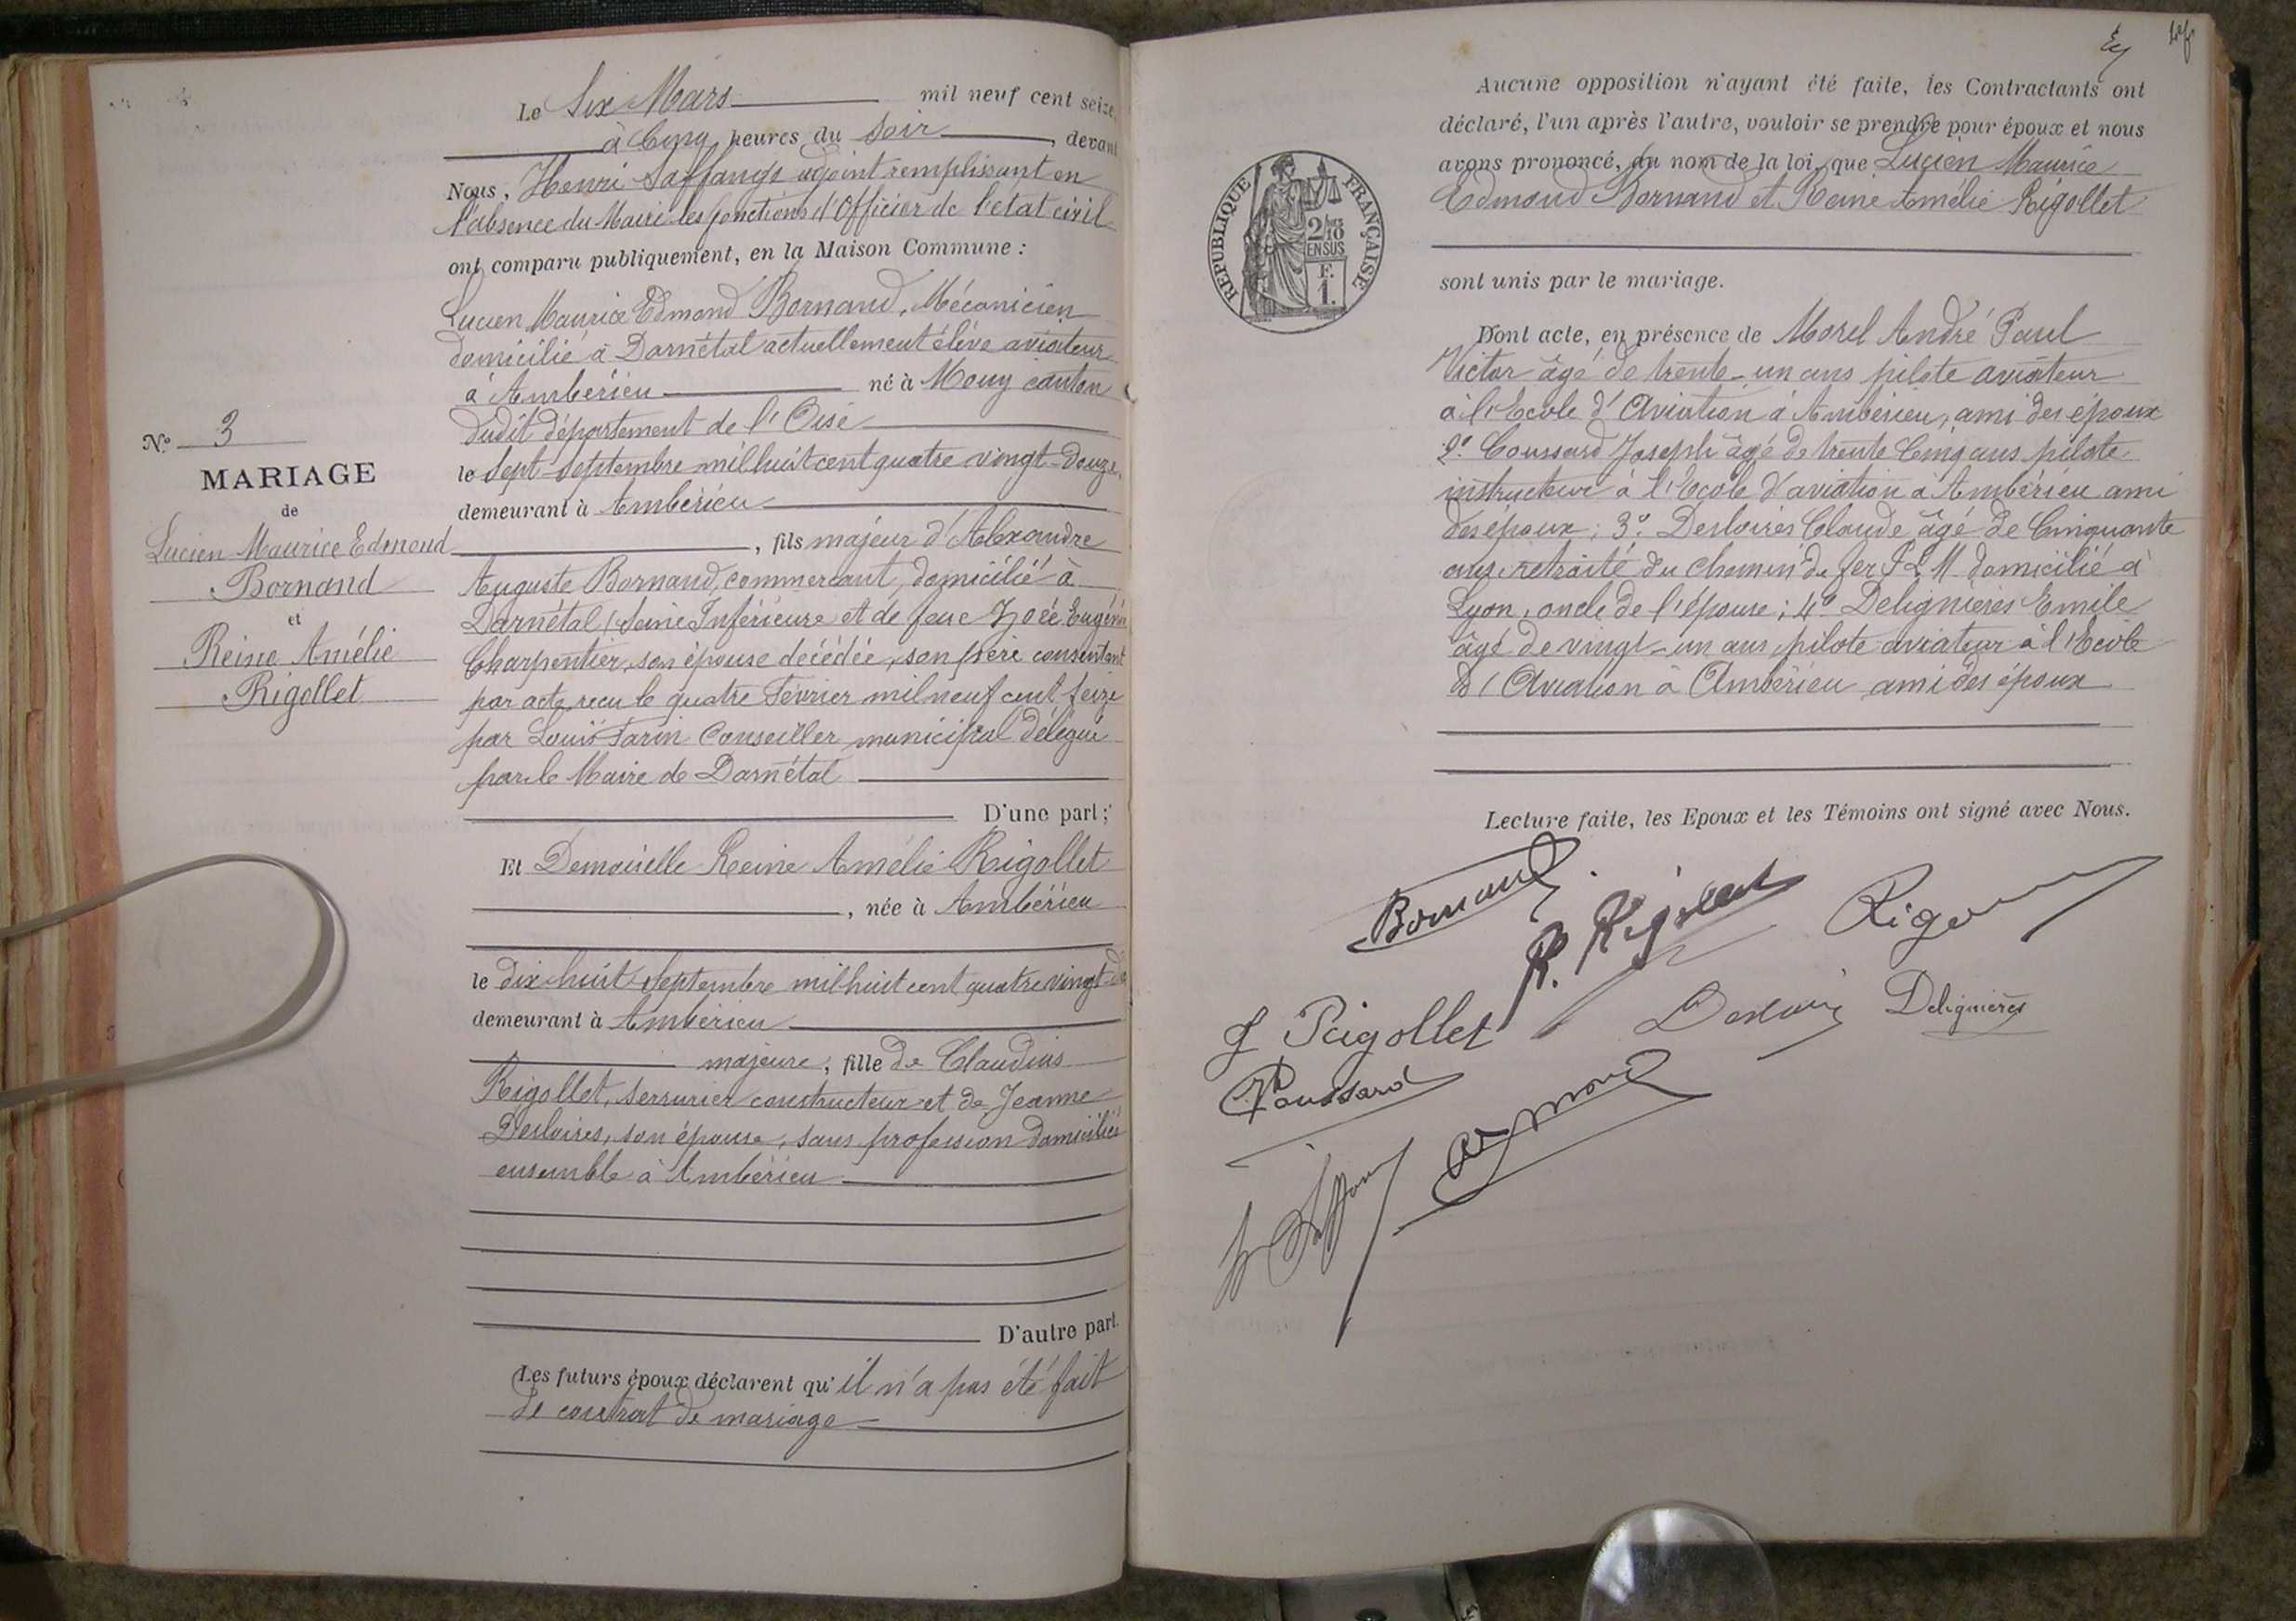 N° 3
MARIAGE
de
Lucien Maurice Edmond
Bornand
et
Reine Amélie
Rigollet
Le Six Mars mil neuf cent seize,
à Cinq heures du Soir, devant
Nous, Henri adjoint remplissant en
l'absence du Maire les fonctions d'Officier de l'état civil
ont comparu publiquement, en la Maison Commune :
Lucien Maurice Edmond Bornand, Mécanicien
domicilié à Darnétal actuellement élève aviateur
à Ambérieu né à Mouy canton
dudit département de l'Oise
le Sept Septembre mil huit cent quatre vingt-douze,
demeurant à Ambérieu
, fils majeur d'Alexandre
Auguste Bornand, commerçant, domicilié à
Darnétal (Seine Inférieure et de feue Zoée Eugénie
Charpentier, son épouse décédée, son père consentant
par acte reçu le quatre Février mil neuf cent seize
par Louis Farin Conseiller municipal délégué
par le Maire de Darnétal
D'une part ;
Et Demoiselle Reine Amélie Rigollet
, née à Ambérieu
le dix huit Septembre mil huit cent quatre vingt
demeurant à Ambérieu
majeure, fille de Claudius
Rigollet, serrurier constructeur et de Jeanne
Desloires, son épouse, sans profession domiciliés
ensemble à Ambérieu
D'autre part.
Les futurs époux déclarent qu'il n'a pas été fait
de contrat de mariage
Aucune opposition n'ayant été faite, les Contractants ont
déclaré, l'un après l'autre, vouloir se prendre pour époux et nous
avons prononcé, au nom de la loi, que Lucien Maurice
Edmond Bornand et Reine Amélie Rigollet
sont unis par le mariage.
RÉPUBLIQUE FRANÇAISE
2/10
EN SUS
F.
1.
Dont acte, en présence de Morel André Paul
Victor âgé de trente-un ans pilote aviateur
à l'Ecole d'Aviation à Ambérieu, ami des époux
2° Coussard Joseph âgé de trente Cinq ans pilote
instructeur à l'Ecole d'aviation à Ambérieu ami
des époux ; 3° Desloires Claude âgé de Cinquante
ans retraité du chemin de fer P L M domicilié à
Lyon, oncle de l'épouse ; 4° Delignières Emile
âgé de vingt-un ans pilote aviateur à l'Ecole
d'Aviation à Ambérieu ami des époux
Lecture faite, les Epoux et les Témoins ont signé avec Nous.
Bornand
R. Rigollet
J Rigollet
Delignières